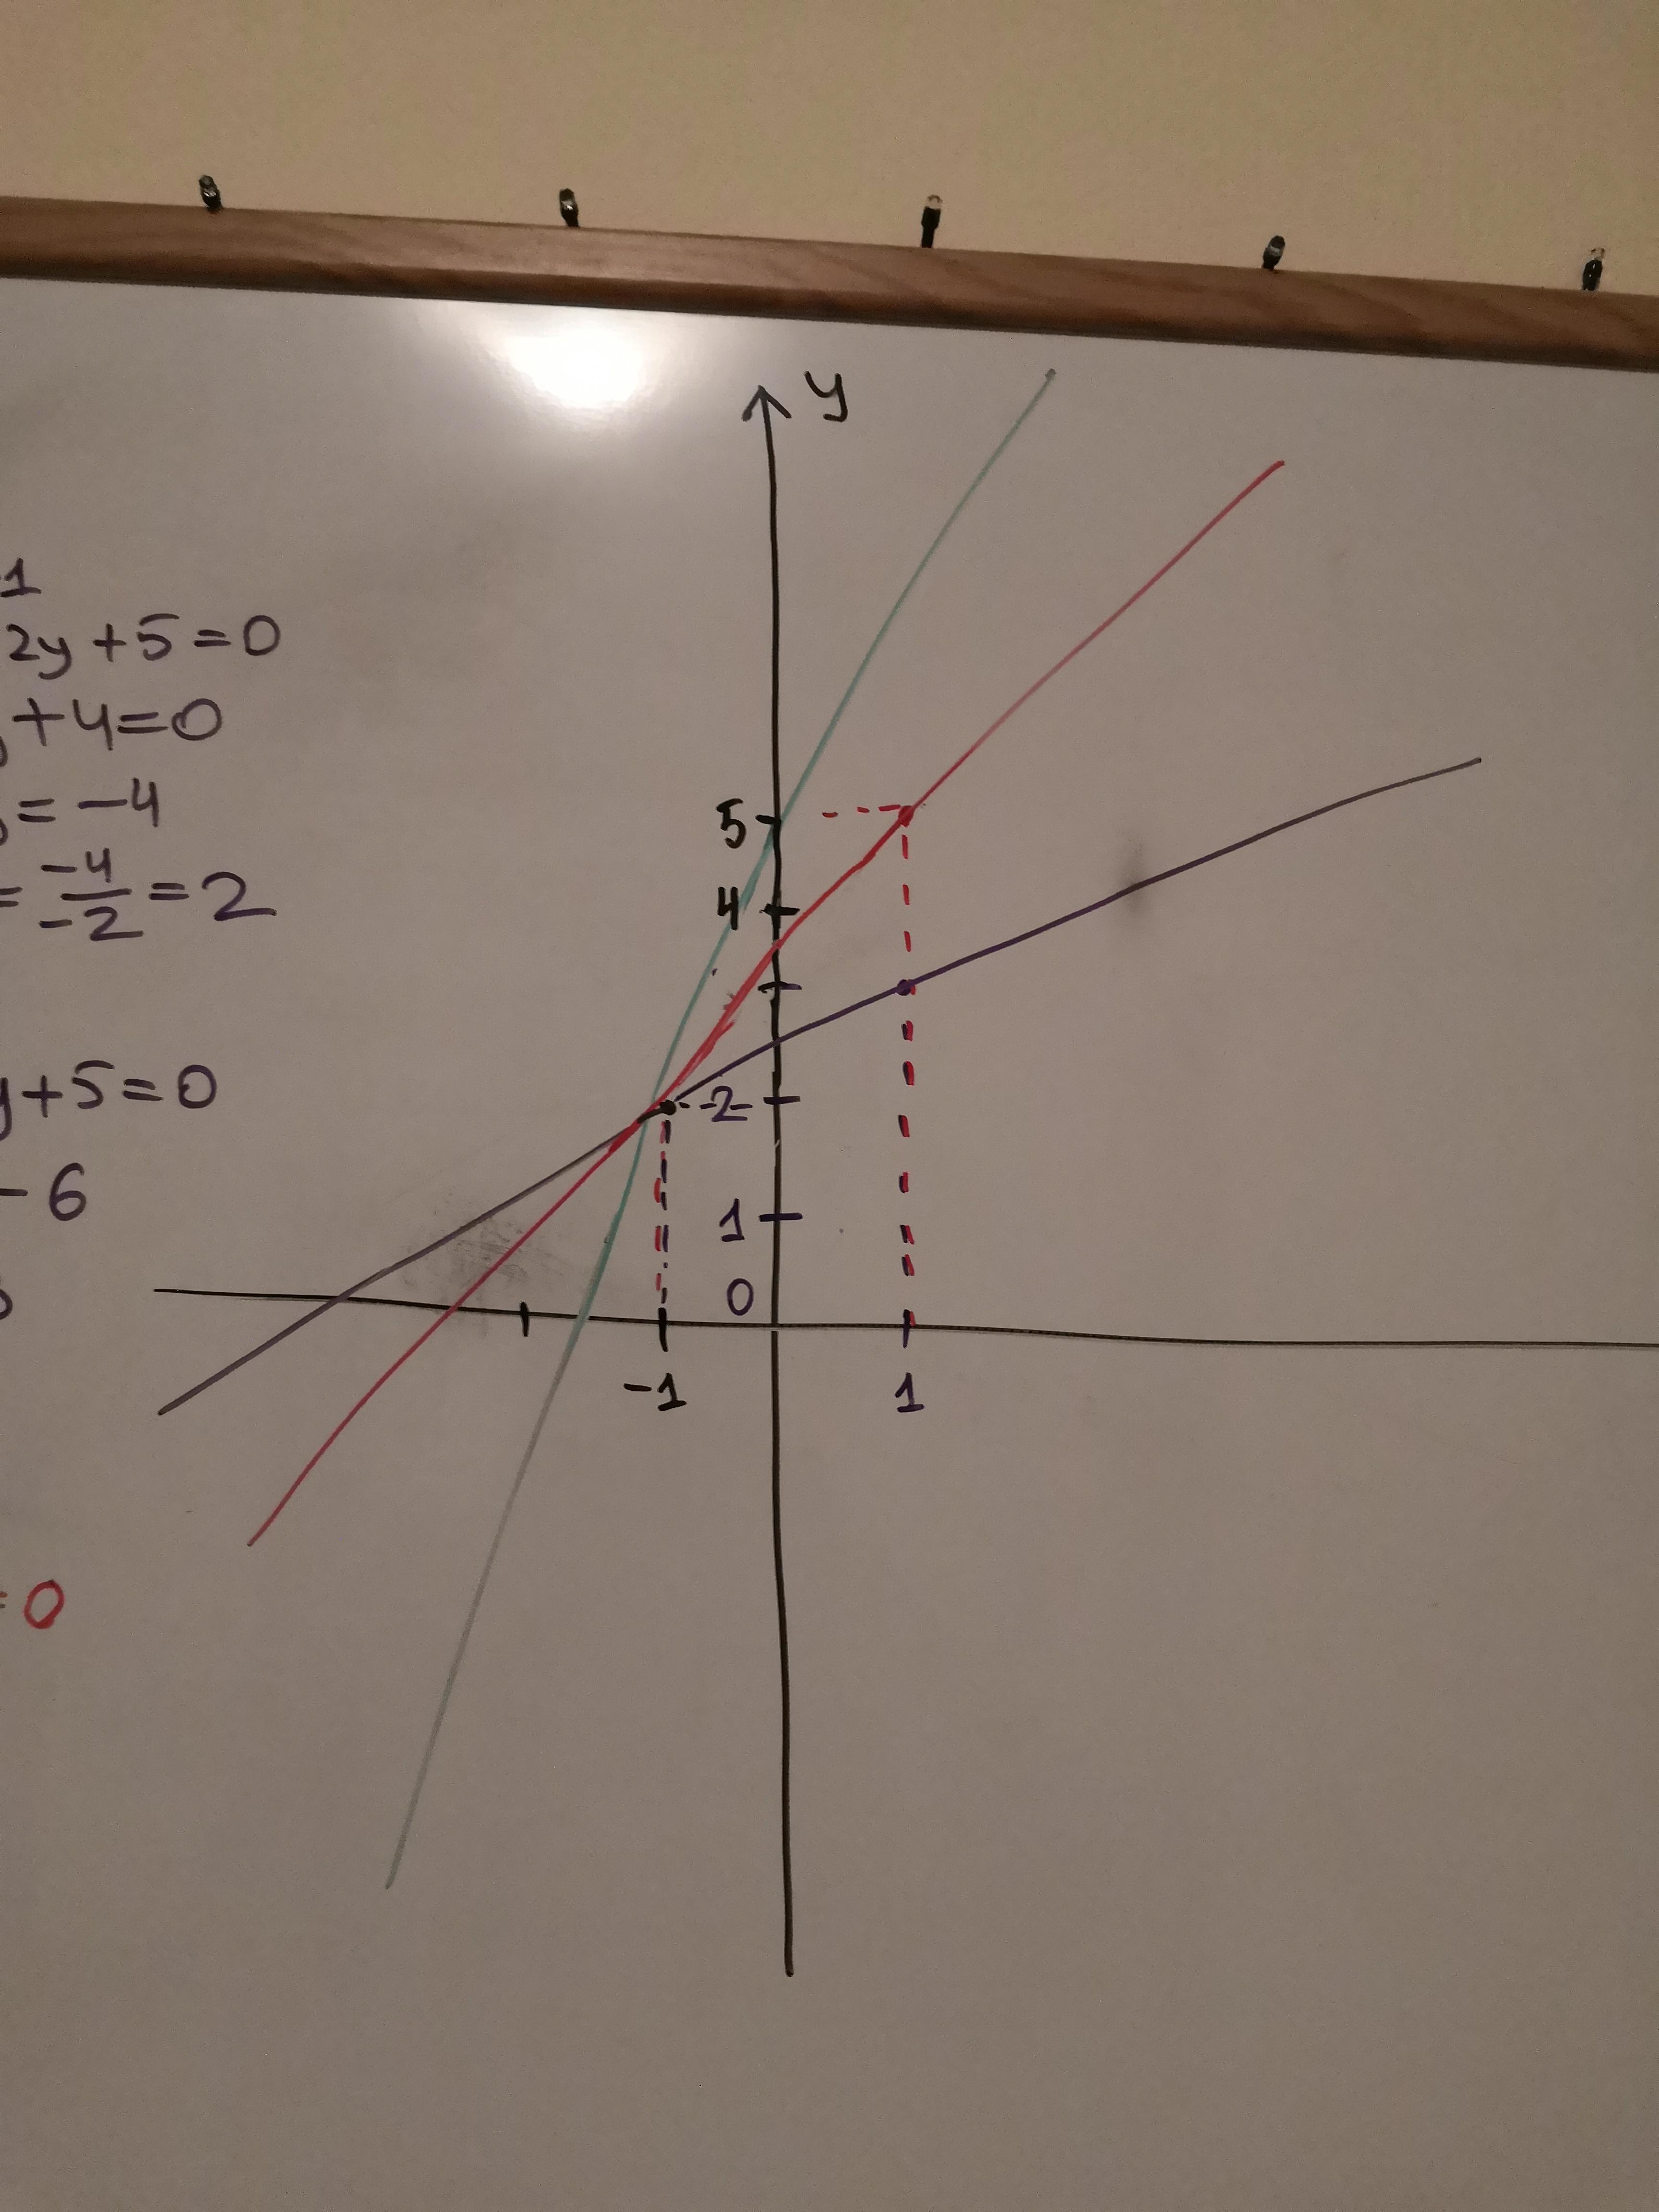 y
-1
2y+5=0
+4=0
= -4
= -4/-2 = 2
5
4
y+5=0
-2-
-6
1
0
-1
1
=0